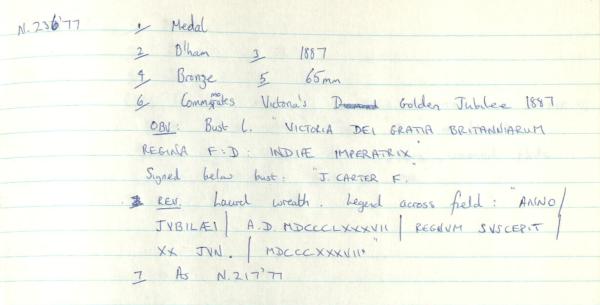 N.236'77 1 Medal
2 B'ham 3 1887
4 Bronze 5 65mm
6 Commemorates Victoria's Golden Jubilee 1887
OBV: Bust L. "VICTORIA DEI GRATIA BRITANNIARUM
REGINA F:D: INDIÆ IMPERATRIX"
Signed below bust: "J. CARTER F.
REV. Laurel wreath. Legend across field: "ANNO/
JVBILÆI| A.D. MDCCCLXXXVII | REGNVM SVSCEPIT/
XX JVN. | MDCCCXXXVII."
7 As N.217'77